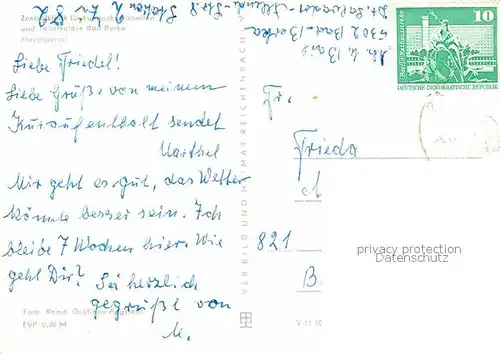 Zentralklinik
und Tuberkulose Bad Berka
Hauptportal
Liebe Friedel!
Liebe Grüße von meinem
Kuraufenthalt sendet
Mir geht es gut, das Wetter
könnte besser sein. Ich
bleibe 7 Wochen hier. Wie
geht Dir? Sei herzlich
gegrüßt von
M.
Foto: Reind Gräfling
EVP 0,20 M
VEB BILD UND HEIMAT REICHENBACH
5302 Bad Berka
10
DEUTSCHE DEMOKRATISCHE REPUBLIK
Fr.
Frieda
821
B.
privacy protection
Datenschutz
V 11 50